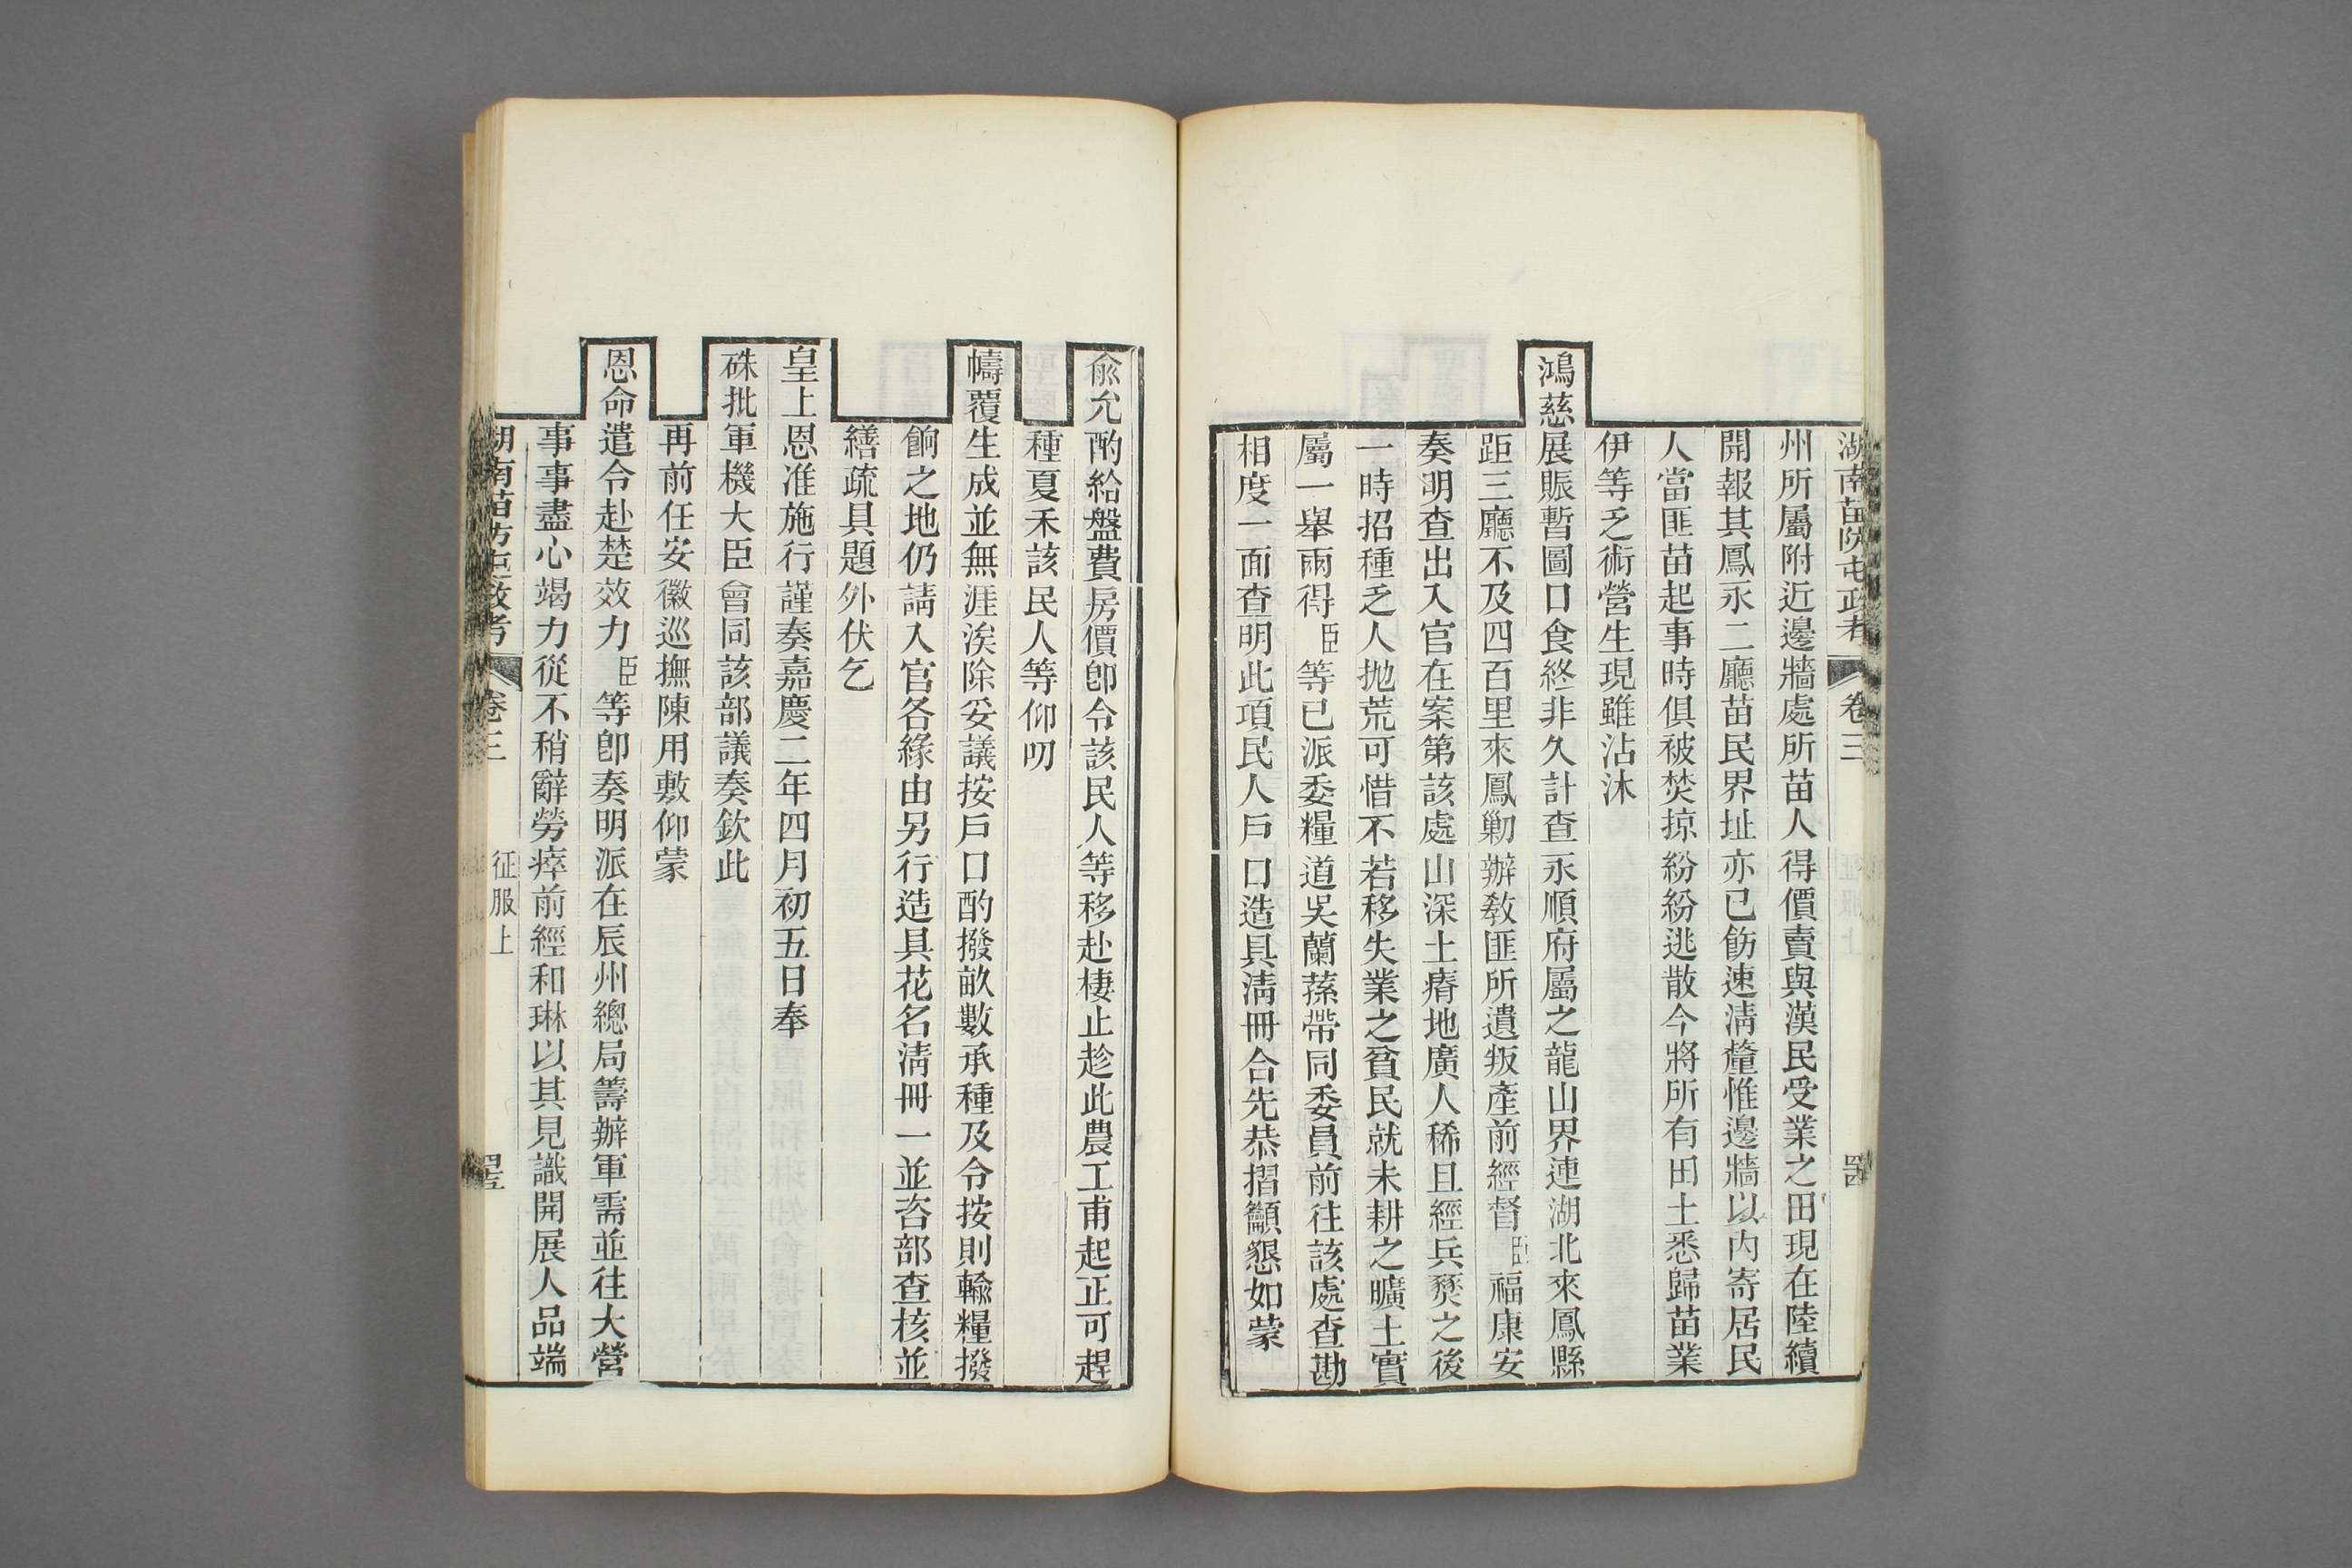 湖南苗防屯政考 卷三 罡
州所屬附近邊牆處所苗人得價賣與漢民受業之田現在陸續
開報其鳳永二廳苗民界址亦已飭速清釐惟邊牆以內寄居民
人當匪苗起事時俱被焚掠紛紛逃散今將所有田土悉歸苗業
伊等乏術營生現雖沾沐
鴻慈展賑暫圖口食終非久計查永順府屬之龍山界連湖北來鳳縣
距三廳不及四百里來鳳勦辦教匪所遺叛產前經督臣福康安
奏明查出入官在案第該處山深土瘠地廣人稀且經兵燹之後
一時招種乏人拋荒可惜不若移失業之貧民就未耕之曠土實
屬一舉兩得臣等已派委糧道吳蘭蓀帶同委員前往該處查勘
相度一面查明此項民人戶口造具清冊合先恭摺籲懇如蒙
俞允酌給盤費房價卽令該民人等移赴棲止趁此農工甫起正可趕
種夏禾該民人等仰叨
幬覆生成並無涯涘除妥議按戶口酌撥畝數承種及令按則輸糧撥
餉之地仍請入官各緣由另行造具花名清冊一並咨部查核並
繕疏具題外伏乞
皇上恩准施行謹奏嘉慶二年四月初五日奉
硃批軍機大臣會同該部議奏欽此
再前任安徽巡撫陳用敷仰蒙
恩命遣令赴楚效力臣等卽奏明派在辰州總局籌辦軍需並往大營
事事盡心竭力從不稍辭勞瘁前經和琳以其見識開展人品端
湖南苗防屯政考 卷三 征服上